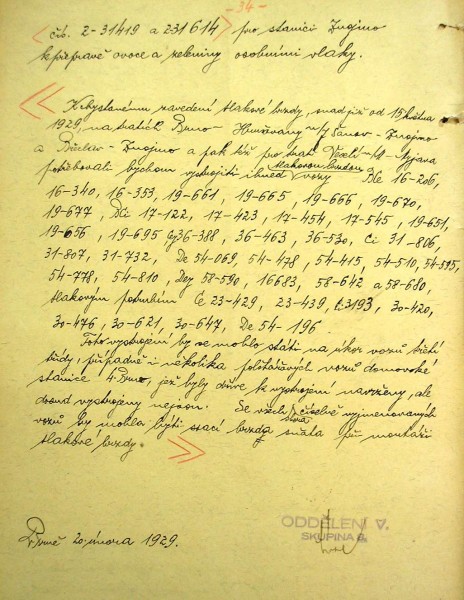 - 34 -
čís. 2-31419 a 2-31614 pro stanici Znojmo
k přepravě ovoce a zeleniny osobními vlaky.
zavedení tlakové brzdy, snad již od 15. května
1929, na tratích Brno - Hrušovany n/J Šanov - Znojmo
a Břeclav - Znojmo a pak též pro trať
potřebovali bychom vystrojiti ihned tlakovou brzdou vozy 16-206,
16-340, 16-353, 19-661, 19-665, 19-666, 19-670,
19-677, 17-122, 17-423, 17-454, 17-545, 19-651,
19-656, 19-695, 36-388, 36-463, 36-530, Ci 31-806,
31-807, 31-732, De 54-069, 54-438, 54-415, 54-510, 54-595,
54-778, 54-810, 58-590, 16683, 58-642 a 58-680,
tlakovým potrubím Ce 23-429, 23-439, 30-420,
30-476, 30-621, 30-647, De 54-196.
Toto vystrojení by se mohlo státi na úkor vozů třetí
třídy, případně i několika poštovních vozů domovské
stanice Brno, jež byly dříve k vystrojení navrženy, ale
dosud vystrojeny nejsou. Se všech číselně vyjmenovaných
vozů by mohla býti ssací brzda sňata při montáži
tlakové brzdy.
V Brně 20. února 1929.
ODDĚLENÍ V.
SKUPINA